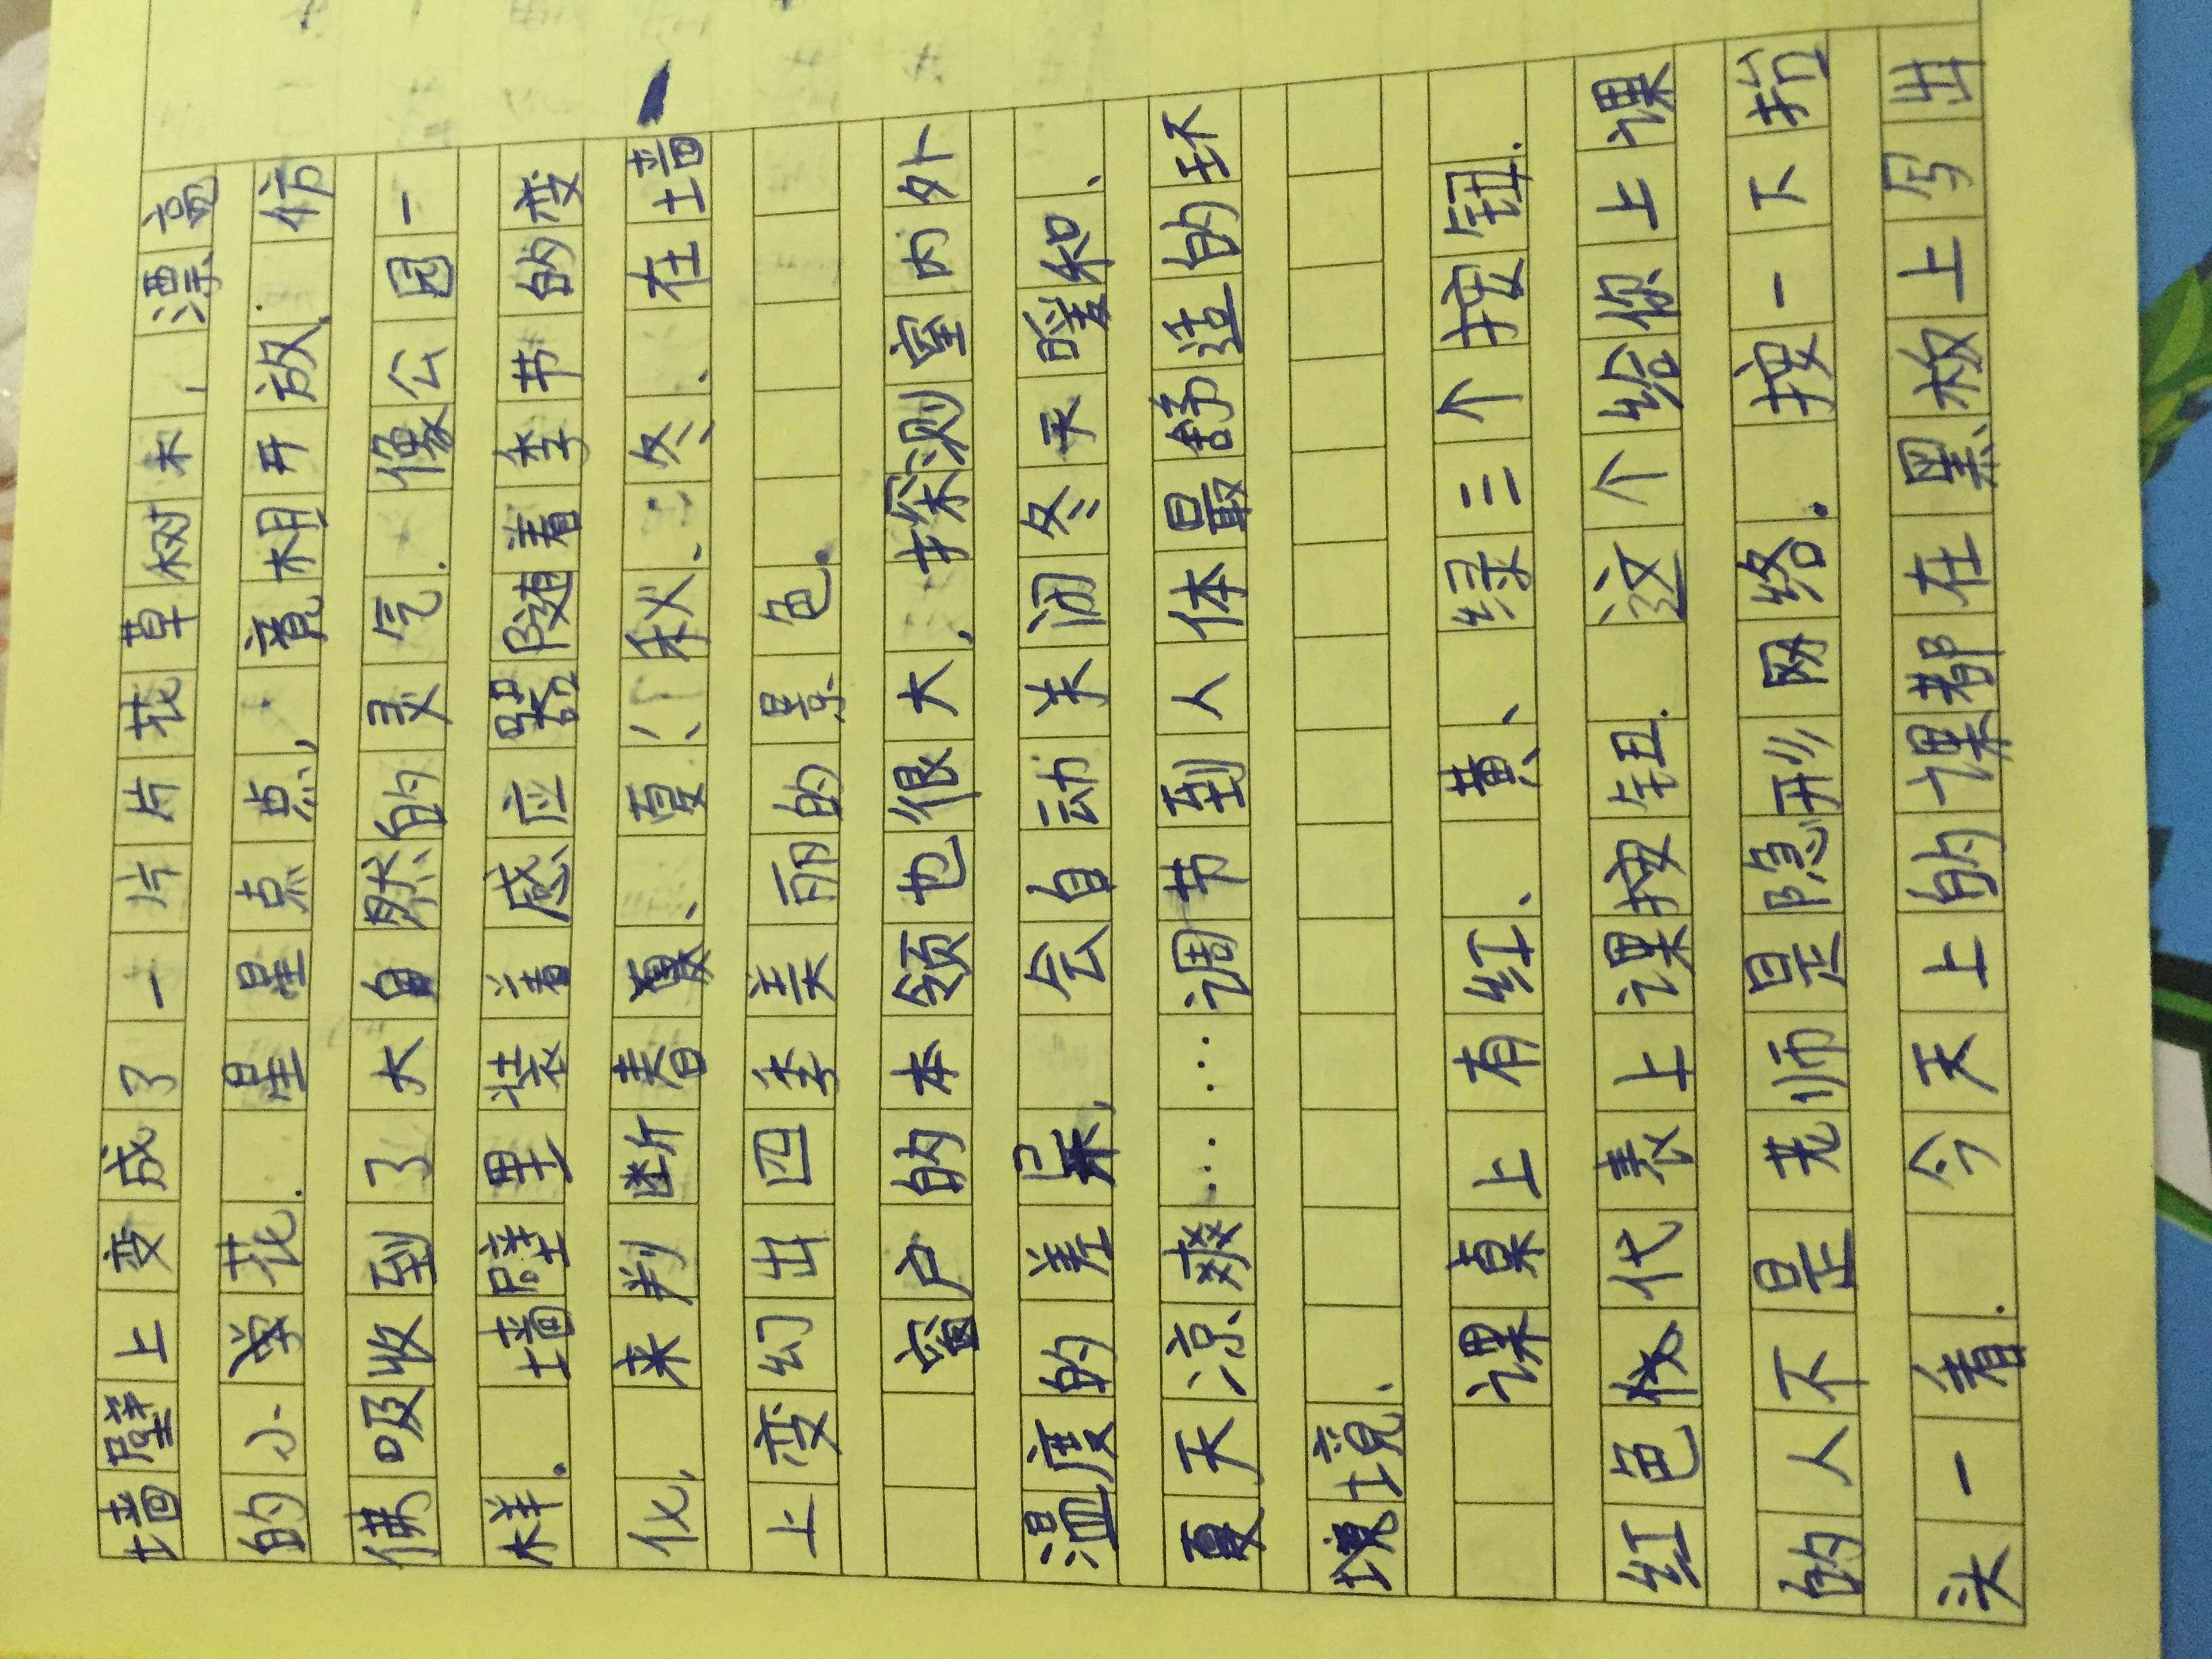 墙壁上变成了一片片花草树木,漂亮
的小花.星星点点,竟相开放.仿
佛吸收到了大自然的灵气.像公园一
样.墙壁里装着感应器随着季节的变
化,来判断春、夏、秋、冬.在墙
上变幻出四季美丽的景色.
窗户的本领也很大,探测室内外
温度的差异,会自动关闭冬天暖和、
夏天凉爽……调节到人体最舒适的环
境、
课桌上有红、黄、绿三个按钮.
红色代表上课按钮.这个给你上课
的人不是老师是隐形网络.按一下抬
头一看.今天上的课都在黑板上写出